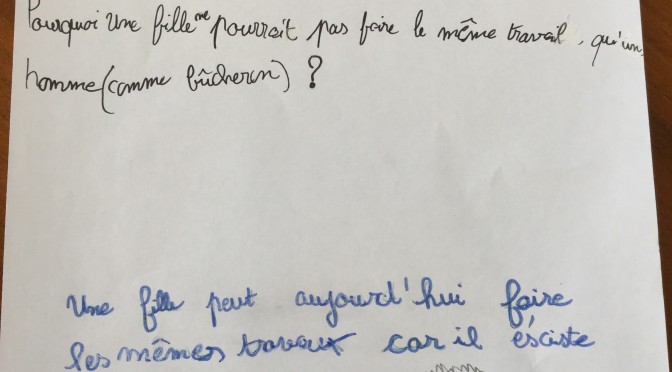 Pourquoi Une fille ne pourrait pas faire le même travail, qu'un
homme (comme bûcheron) ?
Une fille peut aujourd'hui faire
les mêmes travaux car il ésciste